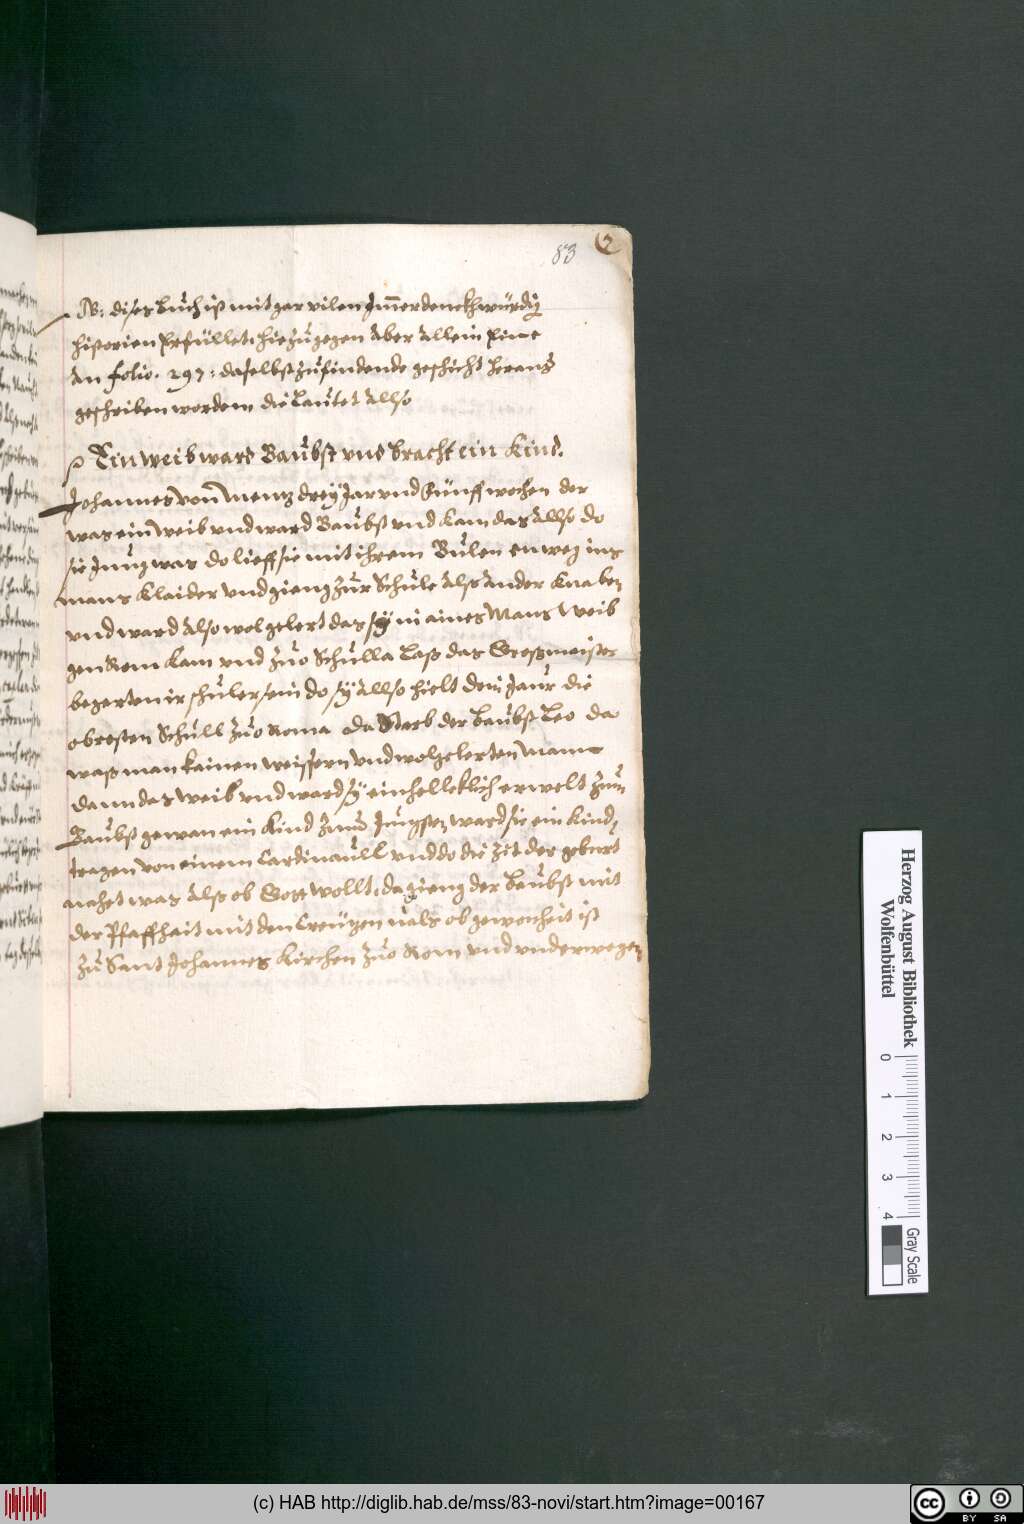 83
2
NB: dises Buch ist mit gar vilen Immerdenckhwürdig
historien Erfüllet, hiezugegen Aber Allein Eine
An folio. 297: daselbst zu findende geschicht heraus
geschriben worden die Lautet Allso
Ein weib ward Baubst vnd bracht ein Kind.
Johannes von Mentz drey Jar vnd Fünff wochen der
was ein Weib vnd ward Baubst vnd kam das Allso do
sie Jung was do lieff sie mit ihrem Bulen enweg ins
mans Klaider vnd gieng zur Schule Alss Ander Knaben
vnd ward Also wol gelert das sy in aines Mans Weib
gen Rom kam vnd zuo Schulla Lass das Grossmeister
begerten ir schuler sein do sy Allso hielt drei Jaur die
obresten Schull zuo Roma da Starb der Baubst Leo da
wass man kainen weissern vnd wolgelerten Manne
dann das Weib vnd ward sy einhelleklich erwelt zum
Baubst gewan ein Kind zum Jungsten ward sie ein Kind
tragen von einem Cardinaull vnd do die Zit der geburt
nahet was Alss ob Gott wollt, da gieng der Baubst mit
der Pfaffhait mit den Creützen als ob gewonheit ist
zu Sant Johannes Kirchen zuo Rom vnd vnderwegen
Herzog August Bibliothek
Wolfenbüttel
0 1 2 3 4
Gray Scale
(c) HAB http://diglib.hab.de/mss/83-novi/start.htm?image=00167
CC BY SA